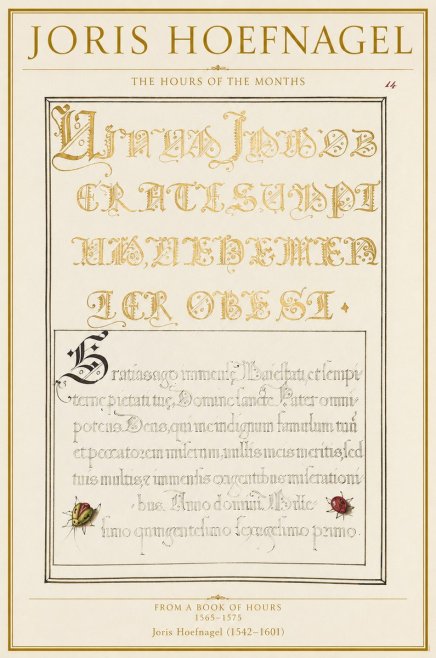 JORIS HOEFNAGEL
THE HOURS OF THE MONTHS
14
VINUM IMMOD
ERATE SUMPT
UM, VEHEMEN
TER OBEST.
Gratias ago immensę Maiestati, et sempi
ternę pietati tuę, Domine sancte Pater omni
potens Deus, qui me indignum famulum tuū
et peccatorem miserum, nullis meis meritis, sed
tuis multis, et immensis exigentibus miserationi
bus. Anno domini Mille
simo quingentesimo sexagesimo primo.
FROM A BOOK OF HOURS
1565–1575
Joris Hoefnagel (1542–1601)